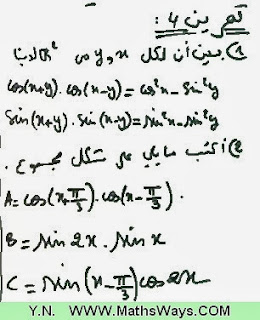 تمرين 4 :
1) بين أن لكل x و y من ℝ² لدينا
cos(x+y).cos(x-y)=cos²x-sin²y
sin(x+y).sin(x-y)=sin²x-sin²y
2) أكتب مايلي على شكل مجموع.
A=cos(x+π/3).cos(x-π/3).
B=sin 2x . sin x
C=sin(x-π/3)cos2x
Y.N. WWW.MathsWays.COM